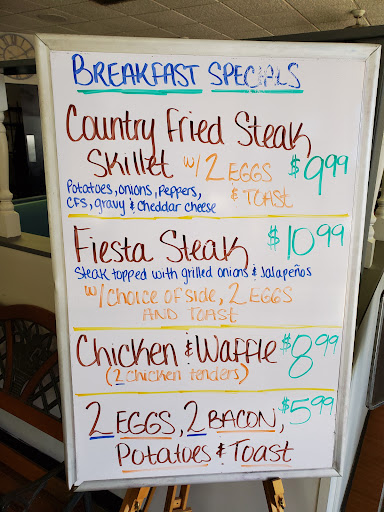 BREAKFAST SPECIALS
Country Fried Steak
Skillet w/ 2 EGGS $9.99
Potatoes, onions, peppers, & TOAST
CFS, gravy & cheddar cheese
Fiesta Steak $10.99
Steak topped with grilled onions & Jalapeños
w/ choice of side, 2 EGGS
AND TOAST
Chicken & Waffle $8.99
(2 chicken tenders)
2 EGGS, 2 BACON, $5.99
Potatoes & Toast